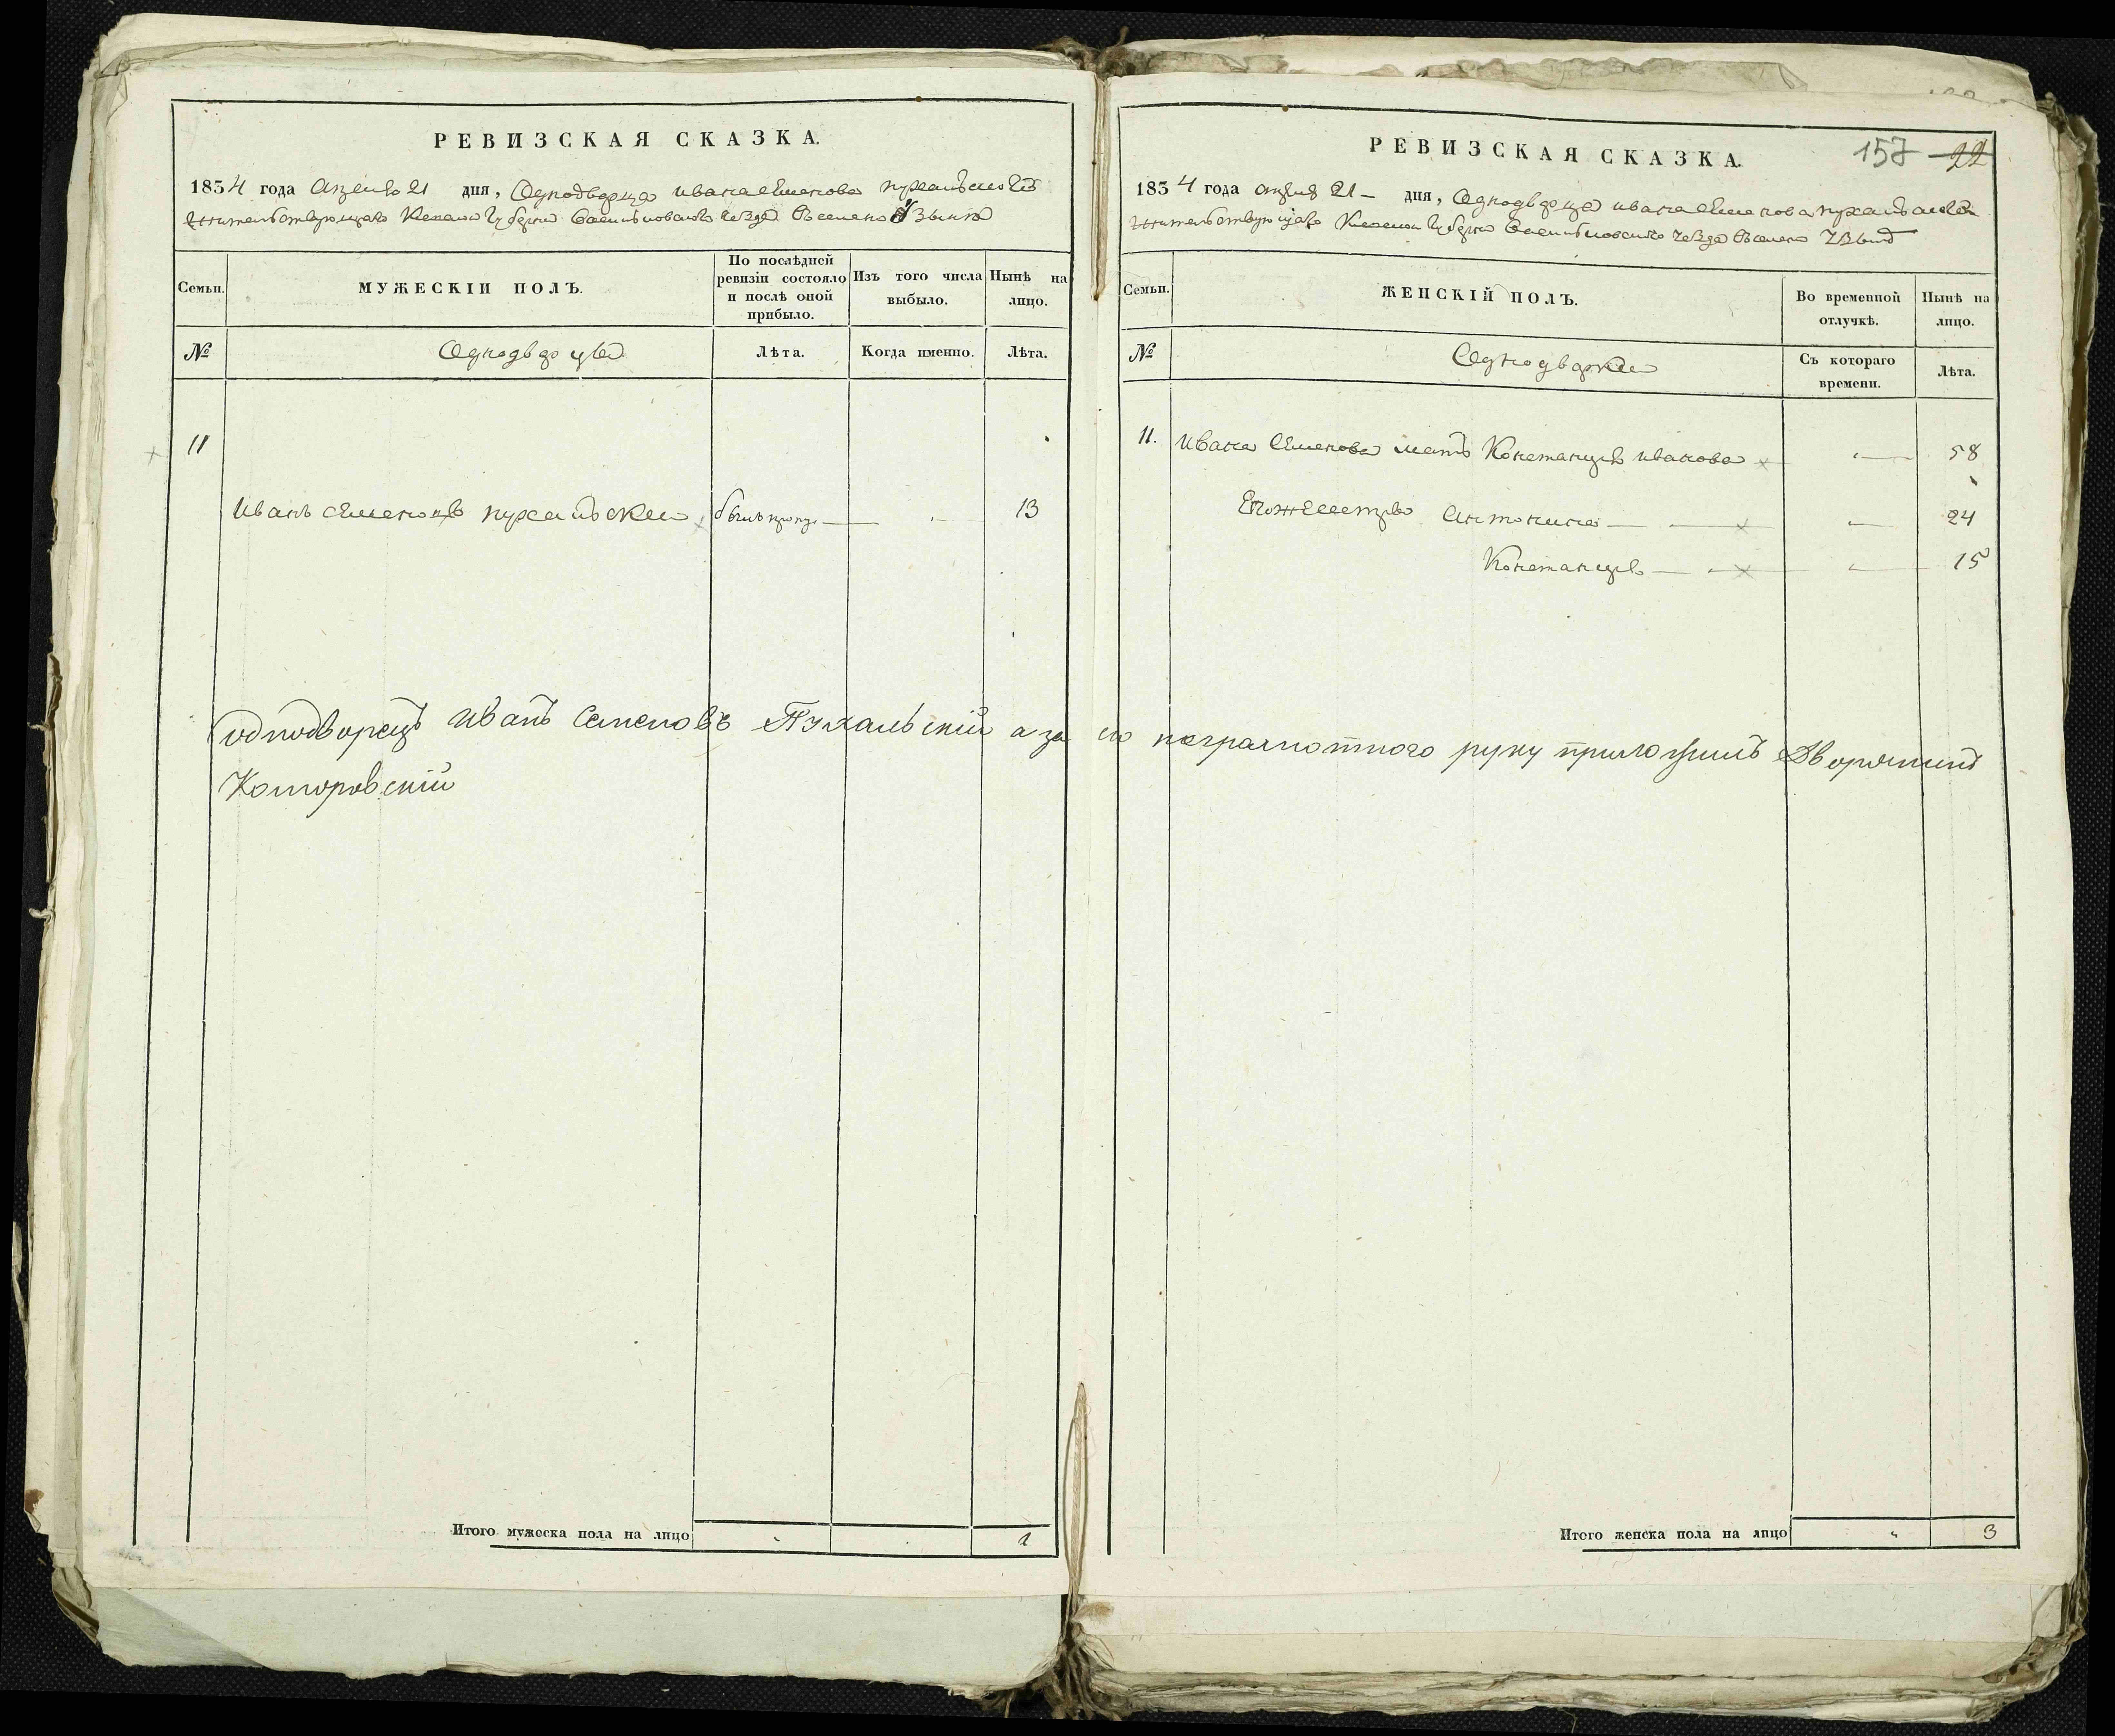 РЕВИЗСКАЯ СКАЗКА.
1834 года Апреля 21 дня, Однодворца ивана Семенова пухальскаго
Жительствующаго Киевской Губернии Васильковскаго уезда Вселение
Семьи.
МУЖЕСКІЙ ПОЛЪ.
По послѣдней ревизіи состояло и послѣ оной прибыло.
Изъ того числа выбыло.
Нынѣ на лицо.
№
Однодворцы
Лѣта.
Когда именно.
Лѣта.
11
Иванъ Семеновъ пухальский
13
Однодворецъ Иванъ Семеновъ Пухальскій а за его неграмотного руку приложилъ Дворянинъ
Которовскій
Итого мужеска пола на лицо
1
РЕВИЗСКАЯ СКАЗКА.
157 22
1834 года апреля 21 дня, Однодворца ивана Семенова пухальскаго
Жительствующаго Киевской Губернии Васильковскаго уезда Вселение
Семьи.
ЖЕНСКІЙ ПОЛЪ.
Во временной отлучкѣ.
Нынѣ на лицо.
№
Однодворки
Съ котораго времени.
Лѣта.
11. Ивана Семенова мать Констанция иванова 58
Антонина 24
Констанция 15
Итого женска пола на лицо
3